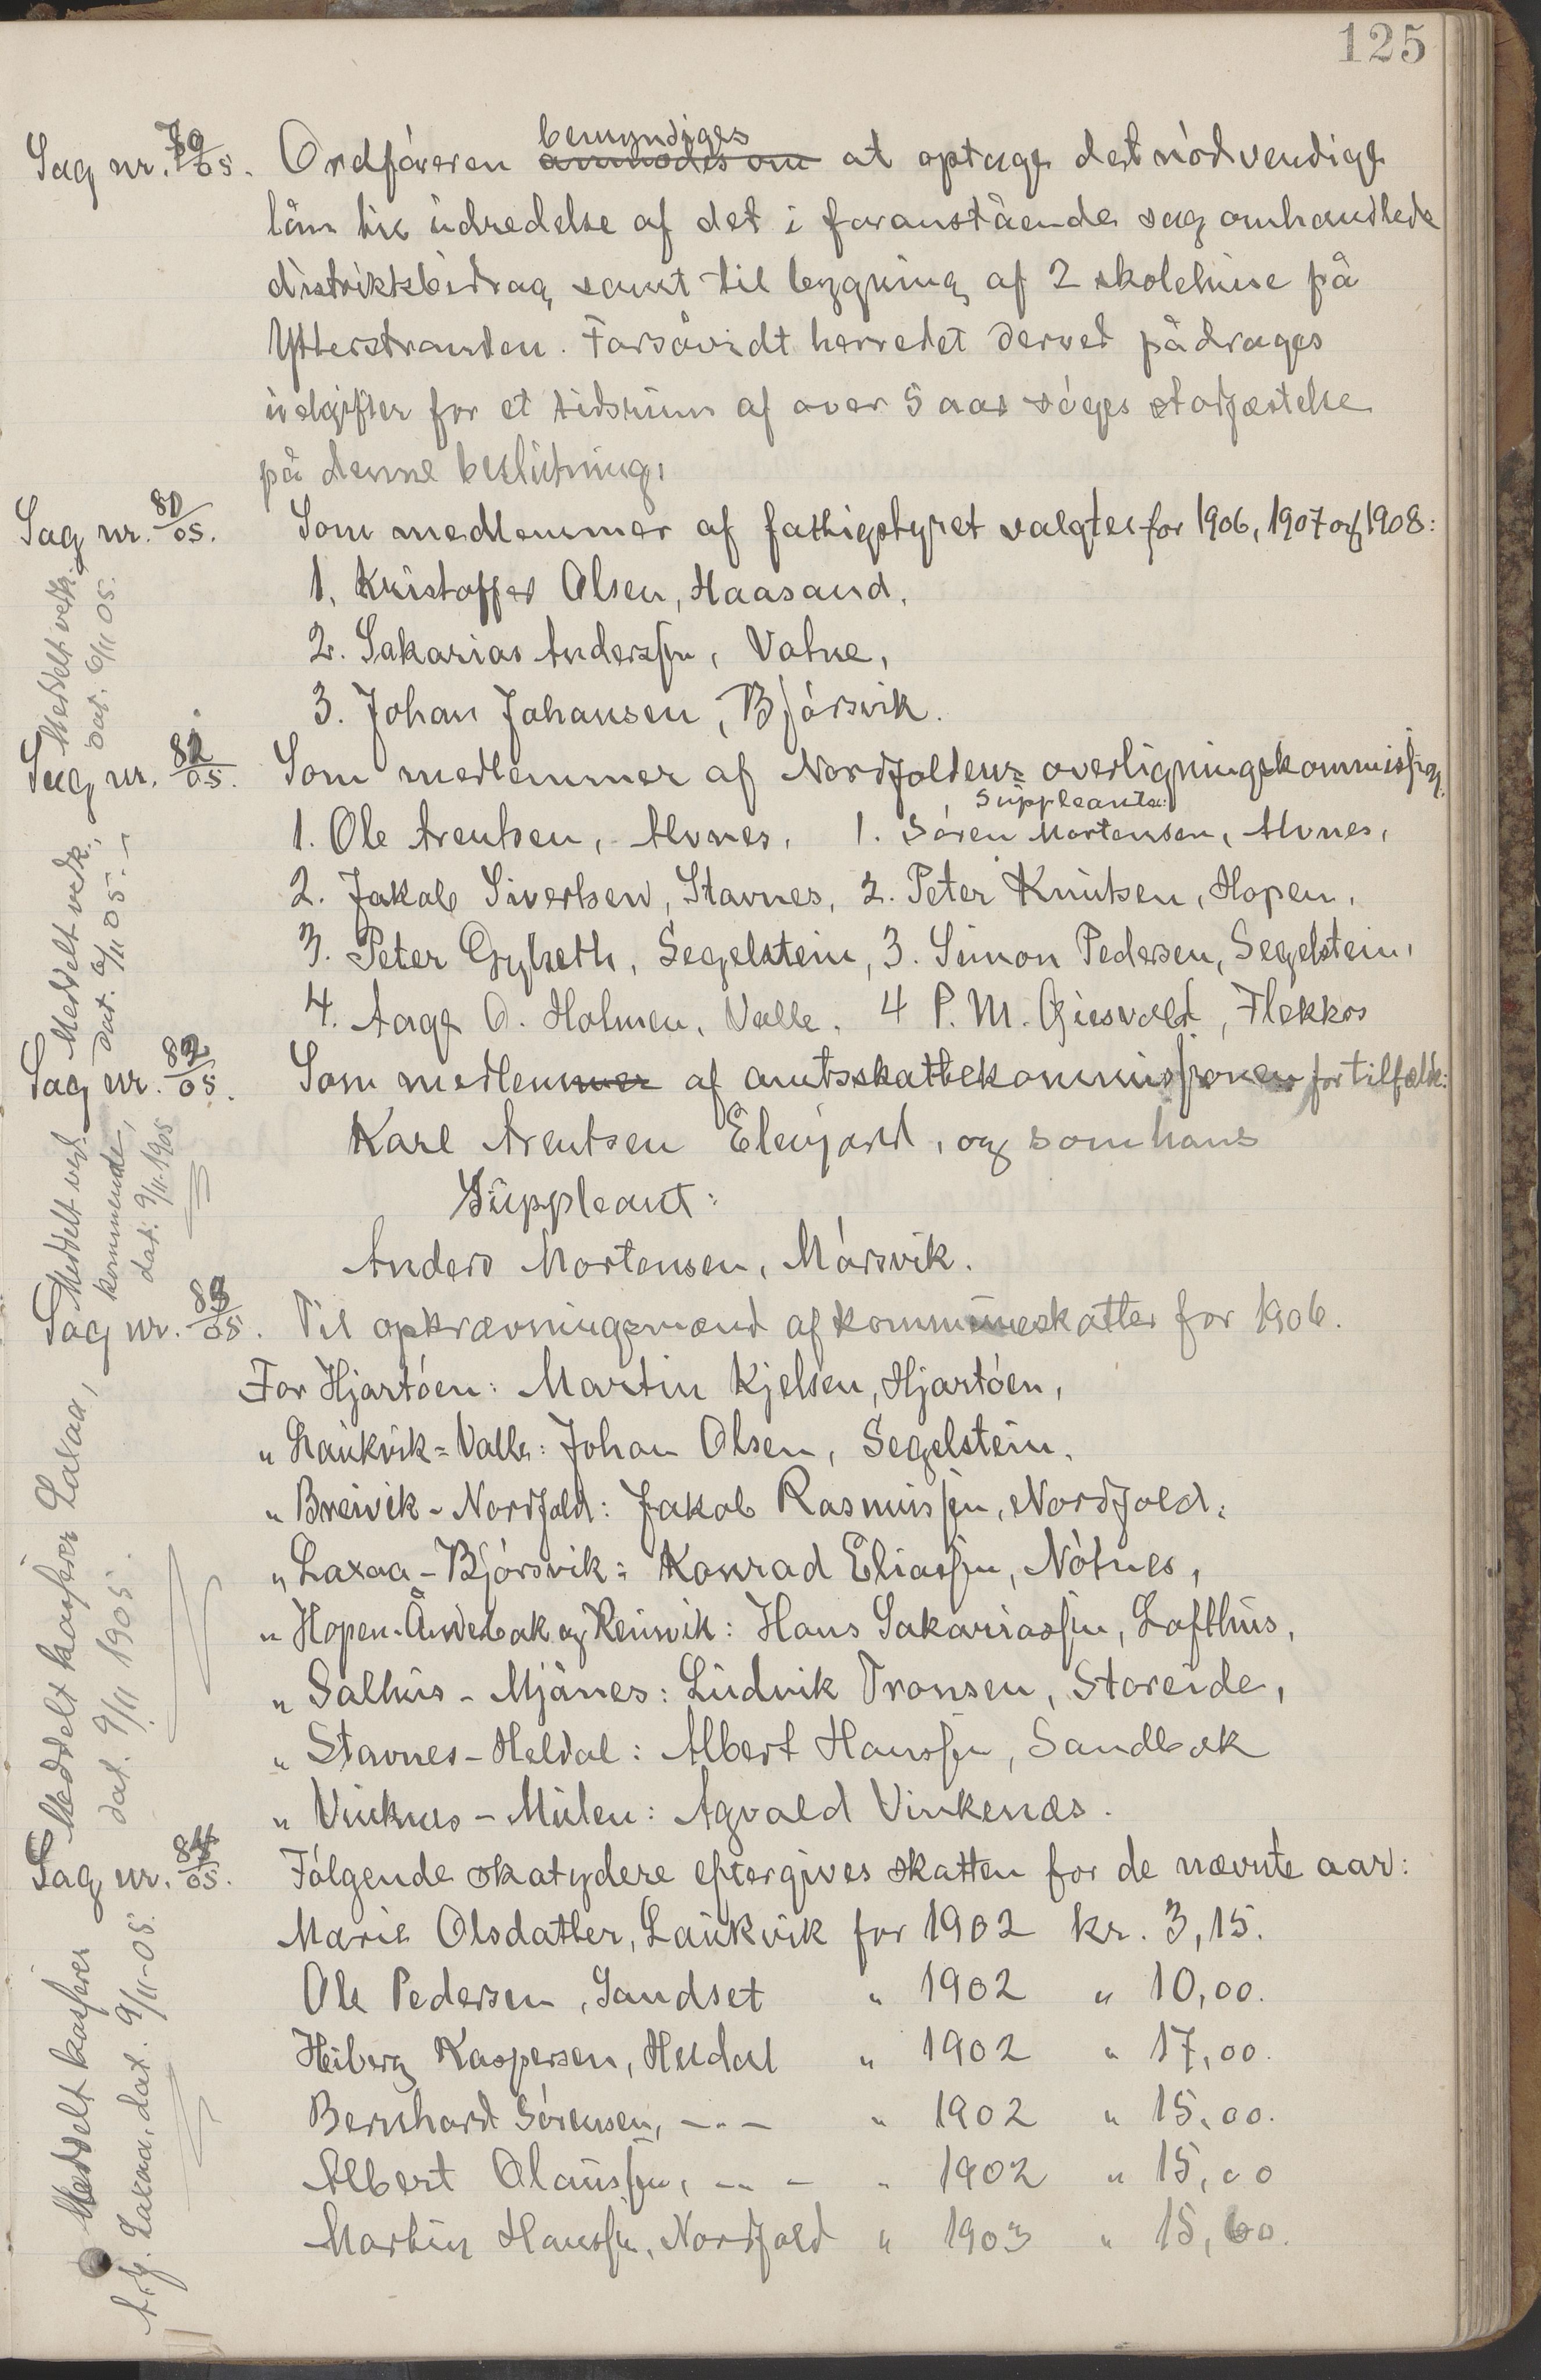 125
Sag nr. 79/05. Ordføreren bemyndiges ~~anmodes om~~ at optage det nødvendige
lån til udredelse af det i foranstående sag omhandlede
distriktsbidrag samt til bygning af 2 skolehuse på
Ytterstranden. Forsåvidt herredet derved pådrages
udgifter for et tidsrum af over 5 aar søges stadfæstelse
på denne beslutning.
Sag nr. 80/05. Som medlemmer af fattigstyret valgtes for 1906, 1907 og 1908:
1. Kristoffer Olsen, Haasand,
2. Sakarias Anderssen, Vatne,
3. Johan Johansen, Bjørsvik.
Meddelt vedk.
dat. 6/11 05.
Sag nr. 81/05. Som medlemmer af Nordfoldens overligningskommission.
Suppleanter:
1. Ole Arentsen, Alvnes, 1. Søren Mortensen, Alvnes,
2. Jakob Sivertsen, Stavnes, 2. Peter Knutsen, Hopen,
3. Peter Gylseth, Segelstein, 3. Simon Pedersen, Segelstein,
4. Aage O. Holmen, Valle, 4 P. M. Giesvold, Fløkkos
Meddelt vedk.,
dat. 6/11 05.
Sag nr. 82/05. Som medlem~~mer~~ af amtsskattekommissionen for tilfælde:
Karl Arentsen Elvejord, og som hans
Suppleant:
Anders Mortensen, Mørsvik.
Meddelt ved-
kommende,
dat. 9/11-1905
Sag nr. 83/05. Til opkrævningsmænd af kommuneskatter for 1906.
For Hjartøen: Martin Kjelsen, Hjartøen,
" Laukvik-Valle: Johan Olsen, Segelstein.
" Breivik-Nordfold: Jakob Rasmussen, Nordfold.
" Laxaa-Bjørsvik: Konrad Eliassen, Nøtnes,
" Hopen-Åndebak og Reinvik: Hans Sakariassen, Lofthus,
" Salhus-Mjånes: Ludvik Transen, Storeide,
" Stavnes-Heldal: Albert Hanssen, Sandbak
" Vinknes-Mulen: Agvald Vinkenæs.
Meddelt kasserer Laxaa,
dat. 9/11 1905.
Sag nr. 84/05. Følgende skatydere eftergives skatten for de nævnte aar:
Marie Olsdatter, Laukvik for 1902 kr. 3,15.
Ole Pedersen, Sandset " 1902 " 10,00.
Heiberg Kaspersen, Heldal " 1902 " 17,00.
Bernhard Sørensen, -"- " 1902 " 15,00.
Albert Olaussen, -"- " 1902 " 15,00
Martin Hanssen, Nordfold " 1903 " 15,60.
Meddelt kasserer
A. J. Laxaa, dat. 9/11-05.